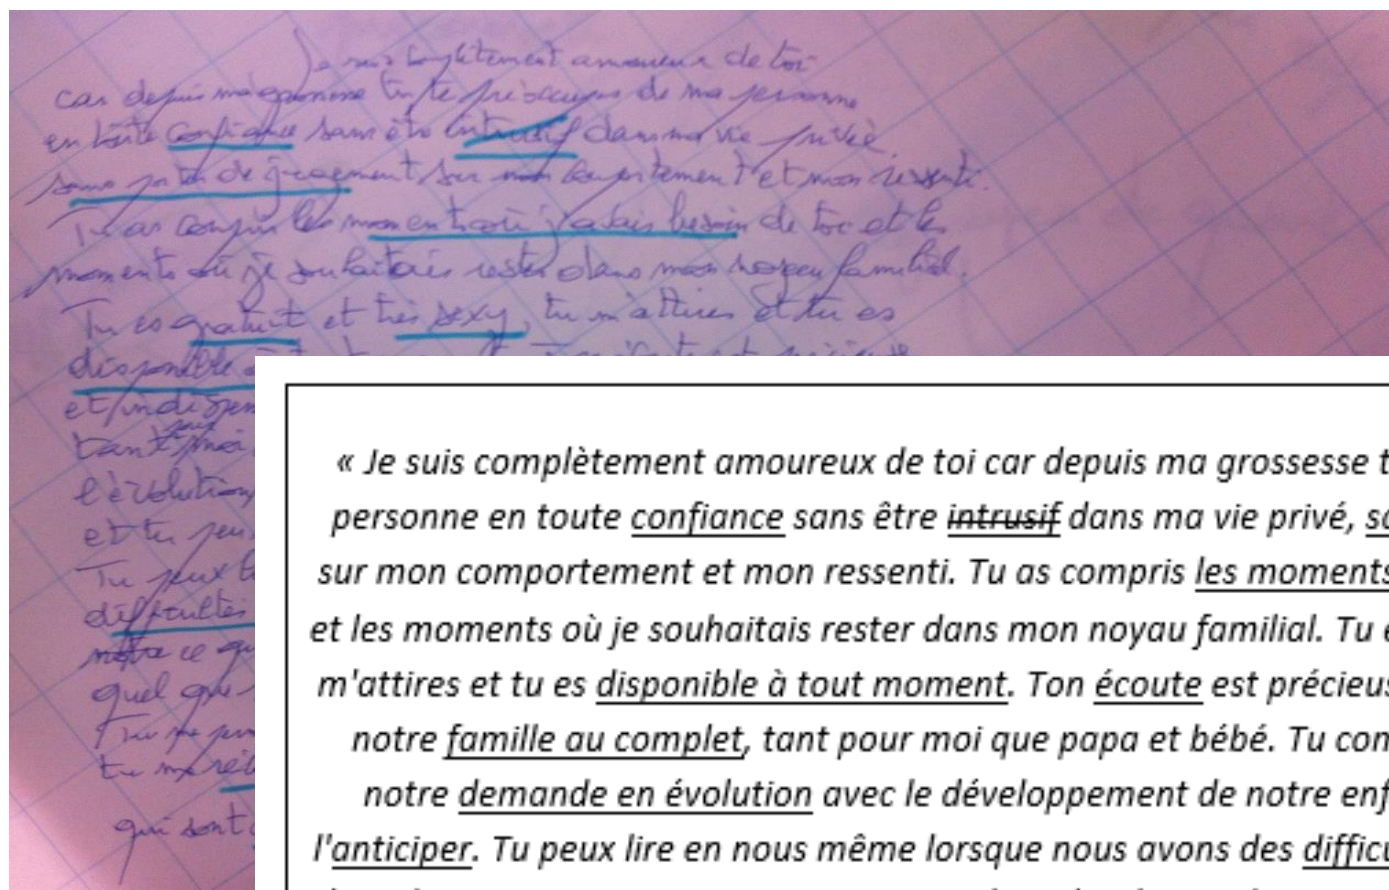 Je suis complètement amoureux de toi
car depuis ma grossesse tu te préoccupes de ma personne
en toute confiance sans être intrusif dans ma vie privée,
sans porter de jugement sur mon comportement et mon ressenti.
Tu as compris les moments où j'avais besoin de toi et les
moments où je souhaitais rester dans mon noyau familial.
Tu es gratuit et très sexy, tu m'attires et tu es
disponible à
et indispen
tant pour moi
l'évolution
et tu peu
Tu peux l
difficultés
notre ce qu
quel que
Tu me
tu me
qui sont
« Je suis complètement amoureux de toi car depuis ma grossesse t
personne en toute confiance sans être intrusif dans ma vie privé, sa
sur mon comportement et mon ressenti. Tu as compris les moments
et les moments où je souhaitais rester dans mon noyau familial. Tu e
m'attires et tu es disponible à tout moment. Ton écoute est précieus
notre famille au complet, tant pour moi que papa et bébé. Tu com
notre demande en évolution avec le développement de notre enf
l'anticiper. Tu peux lire en nous même lorsque nous avons des difficu